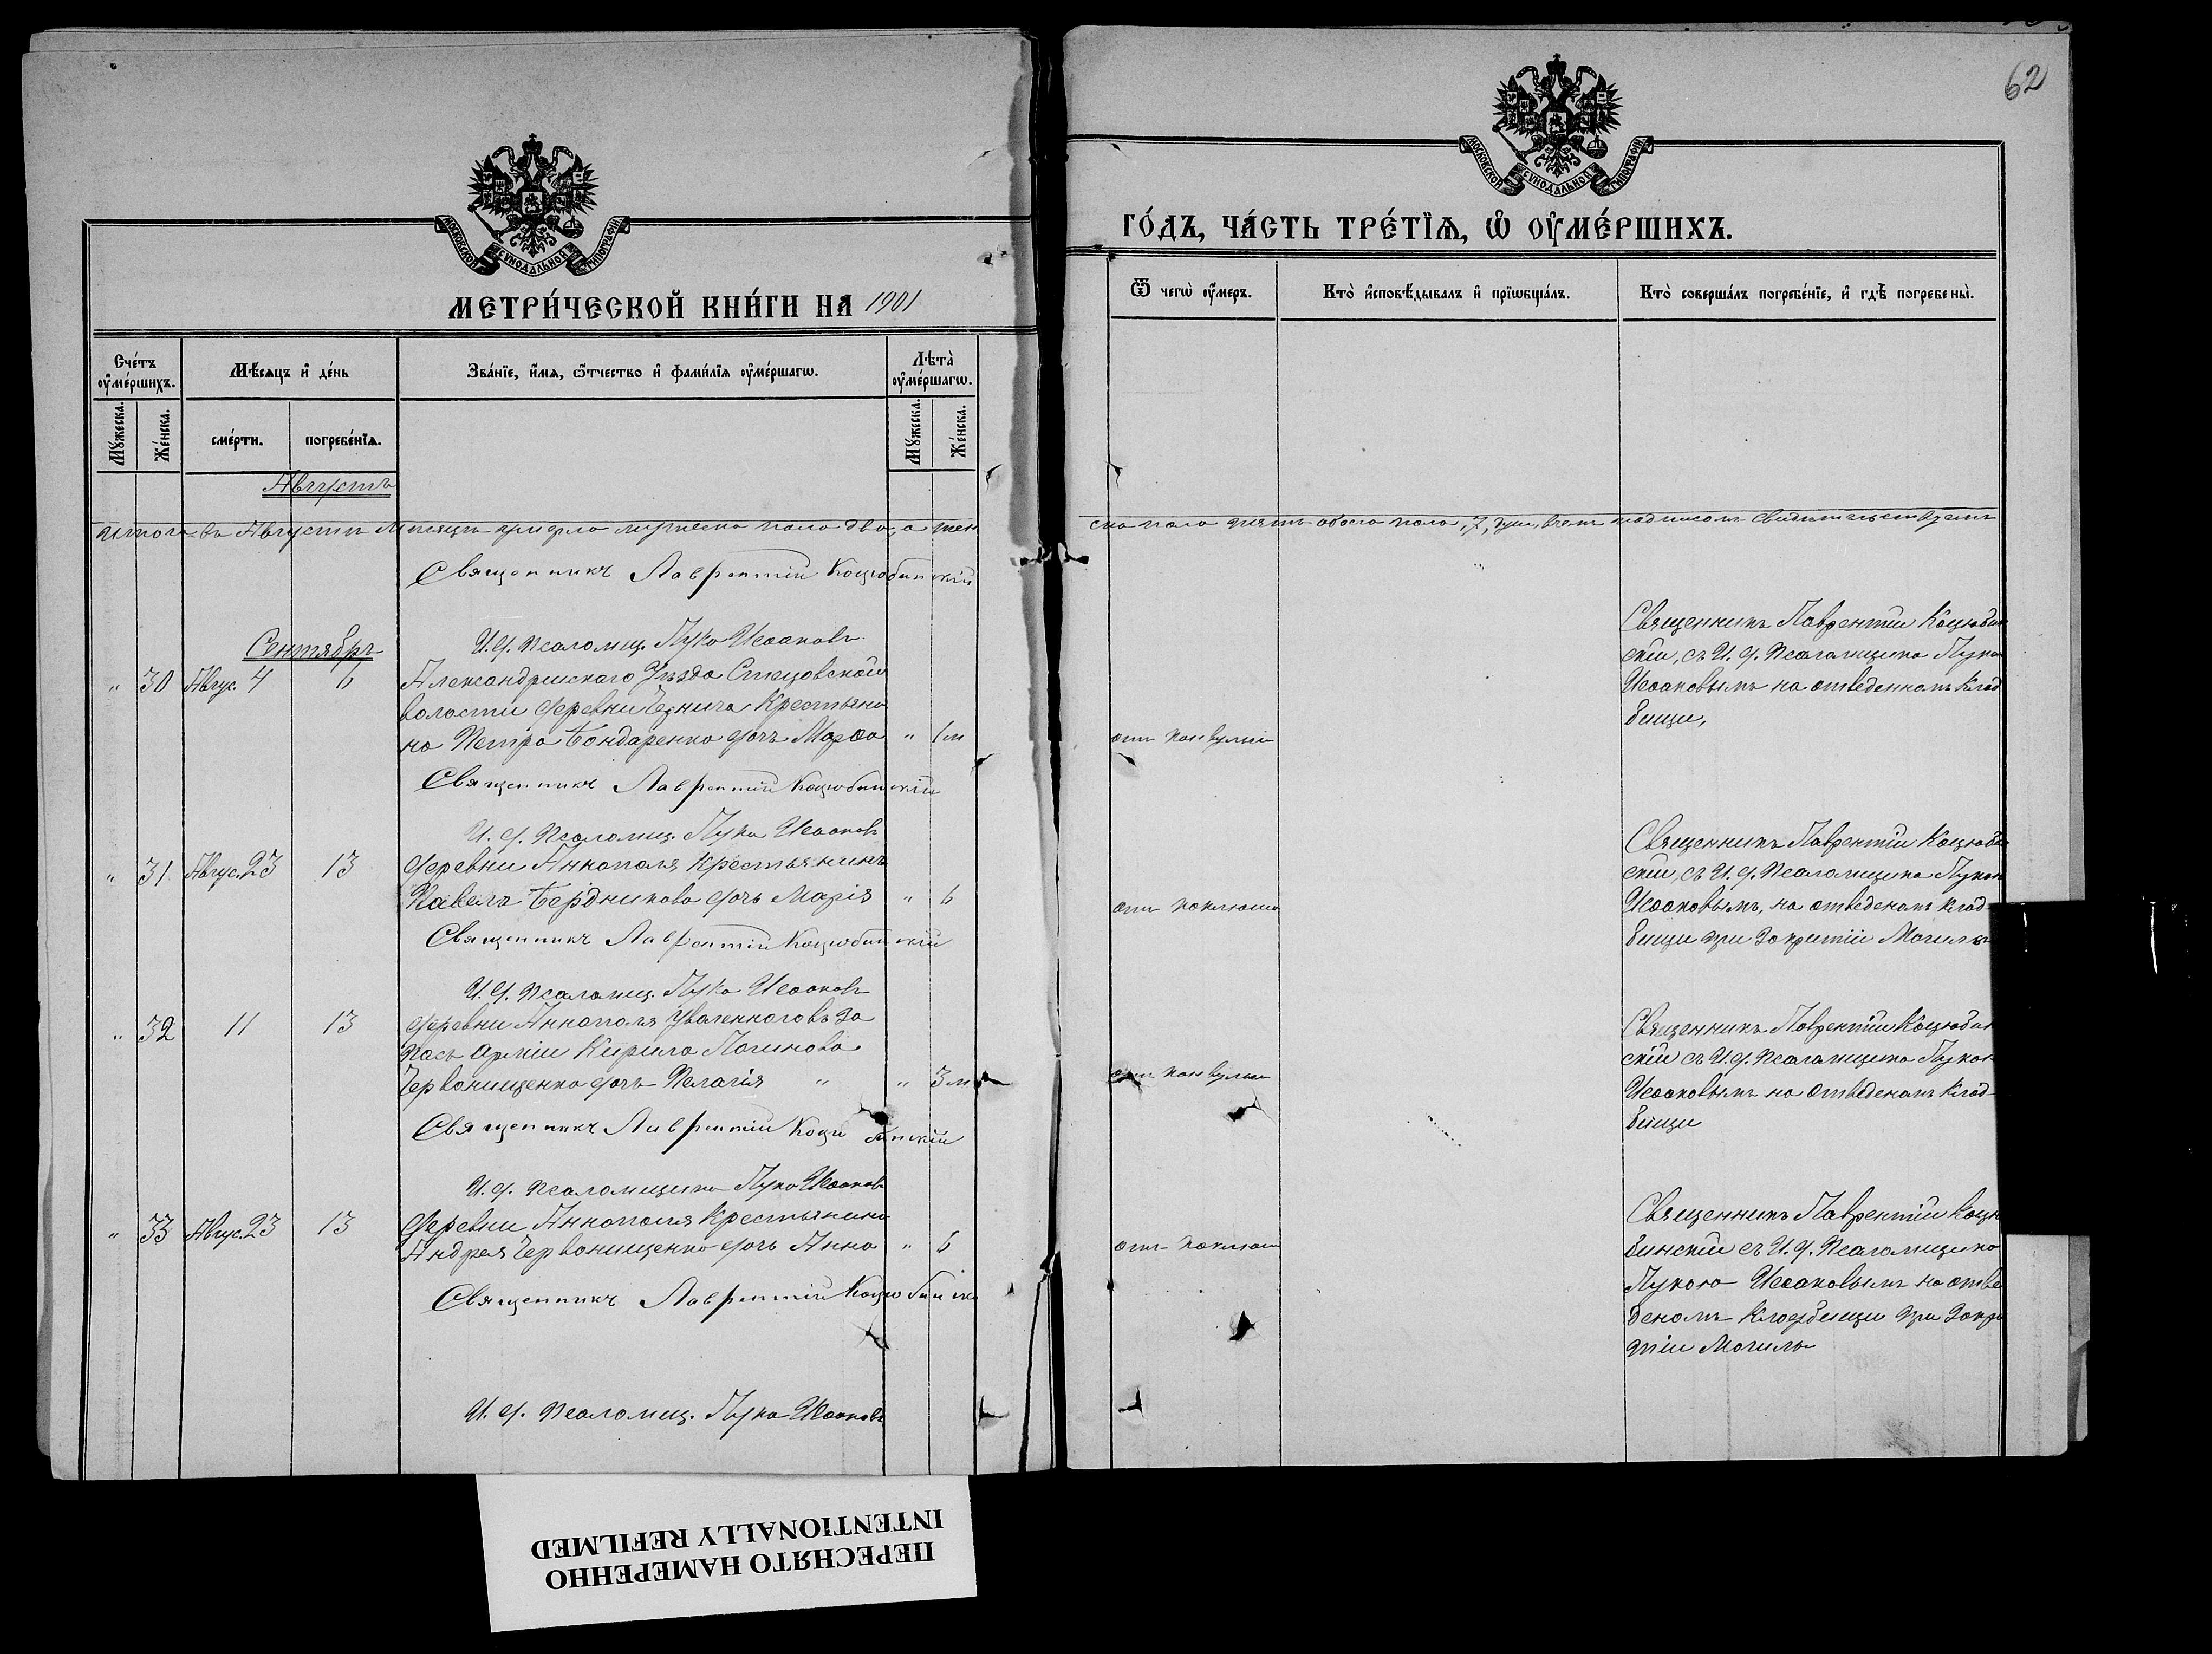 МЕТРИ́ЧЕСКОЙ КНИ́ГИ НА 1901
МОСКОВСКОЙ СѴНОДАЛЬНОЙ ТИПОГРАФІИ
Сче́тъ оу҆ме́ршихъ.
Мѣ́сяцъ и҆ де́нь
Зва́нїе, и҆́мѧ, ѻ҆́тчество и҆ фами́лїѧ оу҆ме́ршагѡ.
Лѣта̀ оу҆ме́ршагѡ.
Мꙋ́жеска.
Же́нска.
сме́рти.
погребе́нїѧ.
Мꙋ́жеска.
Же́нска.
Августъ
Итого въ Августѣ Мѣсяцѣ умерло мужеска пола два, а жен
Священникъ Лаврентій Коцюбинскій
И. д. псаломщ. Лука Исааковъ
Сентябрь
" 30 Авгус. 4 6 Александрійскаго Уѣзда Стецовской
волости деревни
Крестьяни
на Петра Бондаренко дочь Марѳа " 1 м
Священникъ Лаврентій Коцюбинскій
И. д. псаломщ. Лука Исааковъ
" 31 Авгус. 23 13 деревни Аннополя крестьянинъ
Павелъ Бердникова дочь Марія " 6
Священникъ Лаврентій Коцюбинскій
И. д. псаломщ. Лука Исааковъ
" 32 11 13 деревни Аннополя уволеннаго въ за
пасъ арміи Кирила Логинова
Червонищенко дочь Пелагія " " 3 м
Священникъ Лаврентій Коцюбинскій
И. д. псаломщика Лука Исааковъ
" 33 Авгус. 23 13 деревни Аннополя крестьянина
Андрея Червонищенко дочь Анна " 6
Священникъ Лаврентій Коцюбинск
И. д. псаломщ. Лука Исааковъ
62
МОСКОВСКОЙ СѴНОДАЛЬНОЙ ТИПОГРАФІИ
ГО́ДЪ, ЧА́СТЬ ТРЕ́ТЇѦ, Ѡ҆ ОУ҆МЕ́РШИХЪ.
Ѿ чегѡ̀ оу҆́меръ.
Кто̀ и҆сповѣ́дывалъ и҆ прїѡбща́лъ.
Кто̀ соверша́лъ погребе́нїе, и҆ гдѣ̀ погребены̀.
ска пола пять обоего пола, 7, душ, въ чемъ подписомъ свидѣтельствуемъ
отъ конвульсіи
Священникъ Лаврентій Коцюбин
скій, съ И. д. Псаломщика Лукою
Исааковымъ на отведенномъ клад
бищи,
отъ коклюша
Священникъ Лаврентій Коцюбин
скій, съ И. д. Псаломщика Лукою
Исааковымъ, на отведеномъ клад-
бищи при закритіи Могилы
отъ конвульсіи
Священникъ Лаврентій Коцюбин
скій съ И. д. Псаломщика Лукою
Исааковымъ на отведеномъ клад-
бищи
отъ коклюш
Священникъ Лаврентій Коцю
бинскій съ И. д. Псаломщика
Лукою Исааковымъ на отве
деномъ кладбищи при закри
тіи Могилы
ПЕРЕСНЯТО НАМЕРЕННО
INTENTIONALLY REFILMED